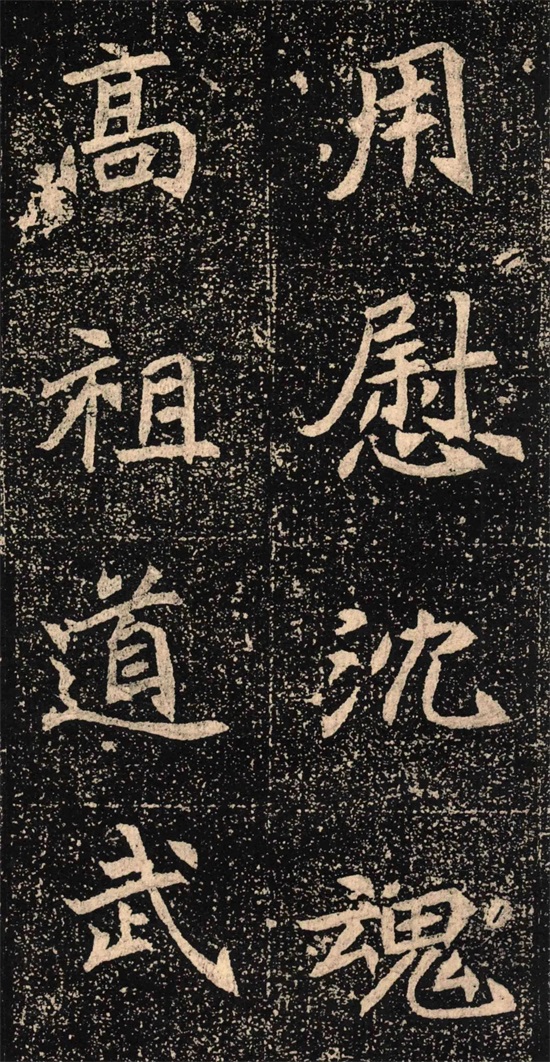 用慰沈魂
高祖道武